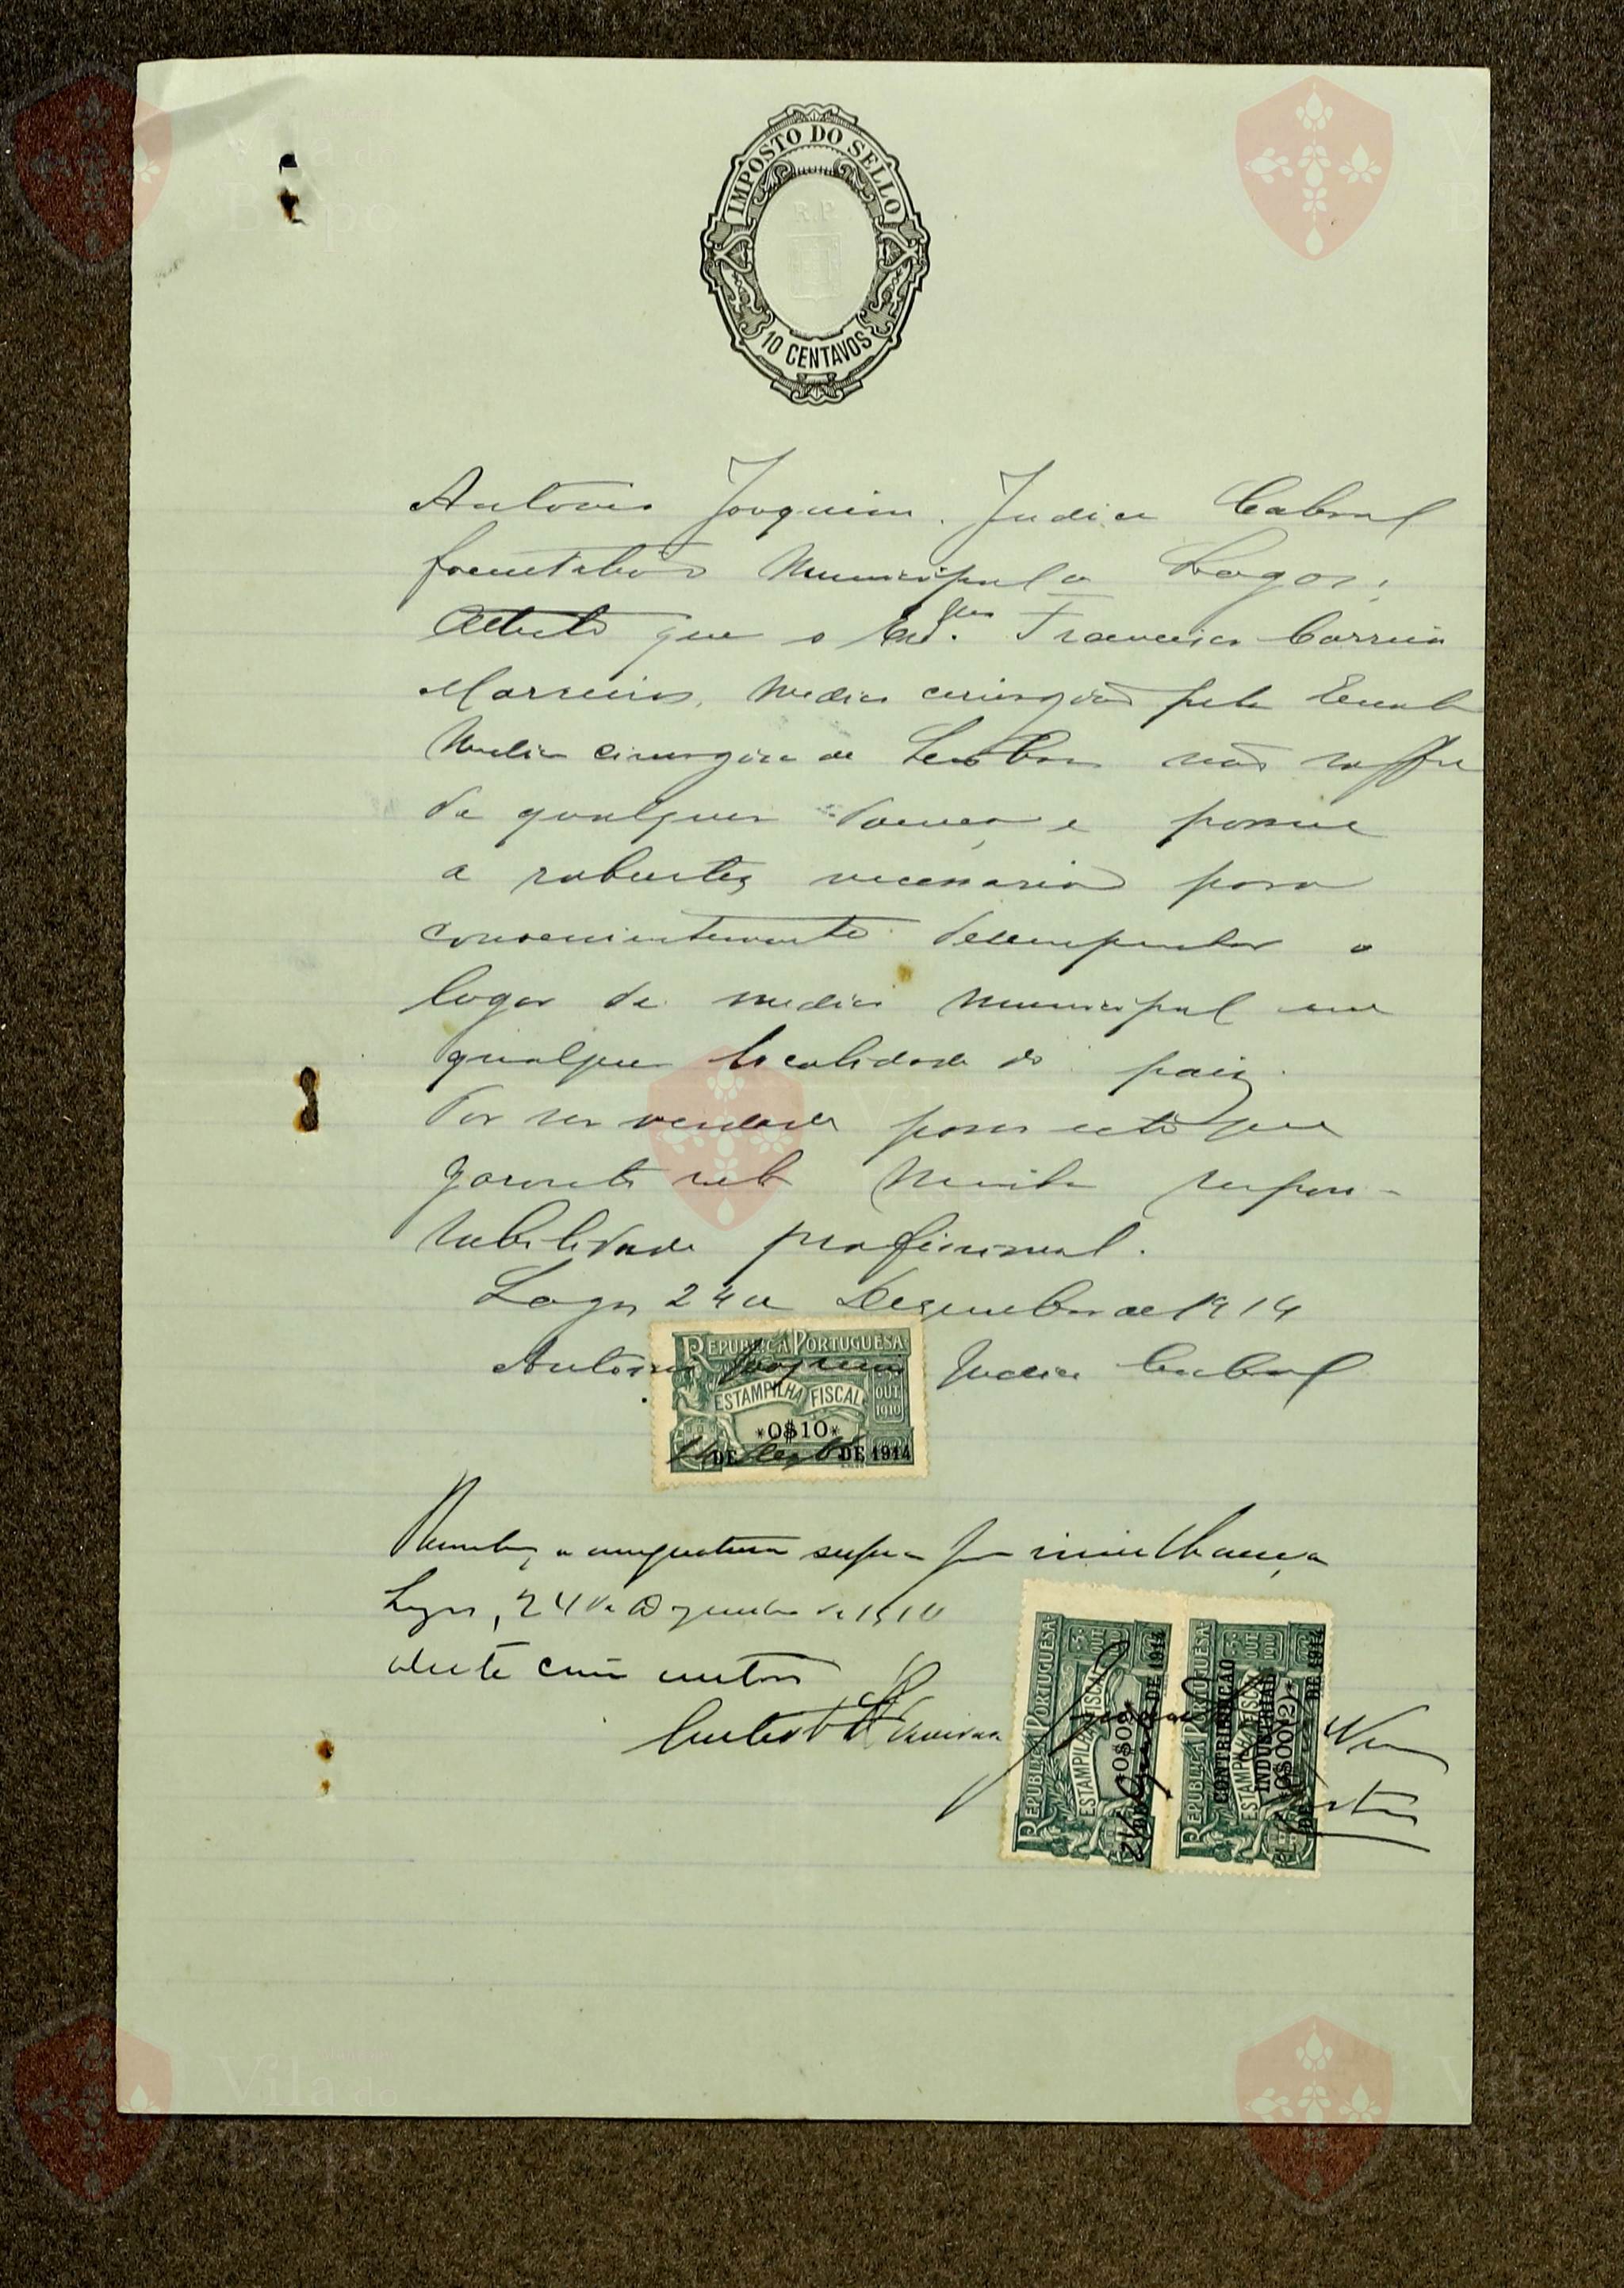 IMPOSTO DO SELLO
R.P
10 CENTAVOS
Antonio Joaquim Judice Cabral
facultativo Municipal de Lagos,
Attesto que o Exmo. Francisco Correia
Marreiros, Medico cirurgião pela Escola
Medico cirurgica de Lisboa não soffre
de qualquer doença e possue
a robustez necessaria para
convenientemente desempenhar o
logar de medico Municipal em
qualquer localidade do paiz.
Por ser verdade passo este que
garanto sob Minha respon-
sabilidade profissional.
Lagos 24 de Dezembro de 1914
Antonio Joaquim Judice Cabral
REPUBLICA PORTUGUESA
ESTAMPILHA FISCAL
5 OUT. 1910
*0$10*
DE Dezbro DE 1914
Reconheço a assignatura supra por similhança
Lagos, 24 de Dezembro de 1914
REPUBLICA PORTUGUESA
ESTAMPILHA FISCAL
*0$02*
DE 1914
REPUBLICA PORTUGUESA
ESTAMPILHA FISCAL
CONTRIBUIÇÃO
INDUSTRIAL
(0$00(2)*
DE 1914
Vila do
Bispo